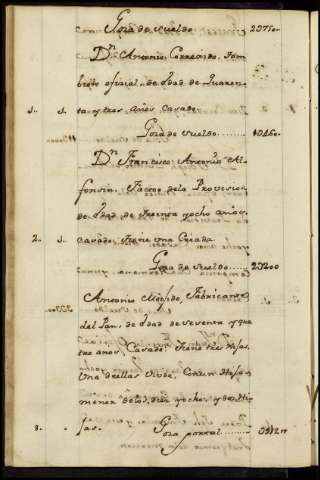 Goza de sueldo 2077..
Dn. Antonio Correando, tam
bien oficial, de Edad de Quaren
1. 1. ta y tres años Casado
Goza de Sueldo ........ 1046..
Dn. Francisco Antonio Al
fonsin, Factor de la Provision
de Edad, de treinta y ocho años,
2. 1. casado, tiene Una Criada
Goza de sueldo ..... 23200
Antonio Fabricante
del Pan, de Edad de setenta y qua
tro anos, Casado. tiene tres Hijas,
Una de ellas Viuda, Con un Hijo
menor de diez y ocho, y dos Hi
3. jas. Goza por